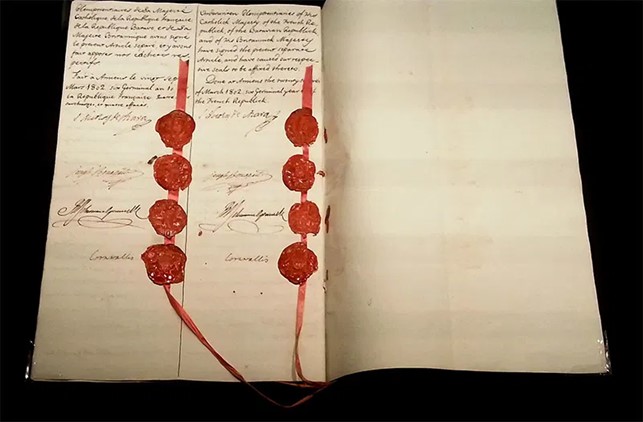 Plenipotentiaires de Sa Majesté
Catholique, de la République Française
de la République Batave, et de Sa
Majesté Britannique avons signé
le présent Article séparé, et y avons
fait apposer nos cachets
Fait à Amiens le vingt sept
Mars 1802, six Germinal an
la République Française
Joseph Bonaparte
Cornwallis
Plenipotentiaries of his
Catholick Majesty, of the French Re-
publick, of the Batavian Republick
and of his Britannick Majesty
have signed the present separate
Article, and have caused our respec-
tive seals to be affixed thereto.
Done at Amiens the twenty
of March 1802, six Germinal year
the French Republick.
Joseph Bonaparte
Cornwallis